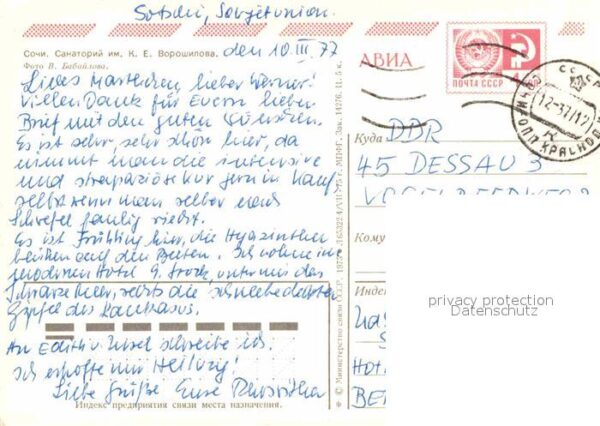 Sotschi, Sowjetunion.
Сочи. Санаторий им. К. Е. Ворошилова. den 10. III. 77
Фото В. Бабайлова.
Liebes Marthchen, lieber Werner!
Vielen Dank für Euern lieben
Brief mit den guten Wünschen.
Es ist sehr, sehr schön hier, da
nimmt man die intensive
und strapaziöse Kur gern in Kauf,
selbst wenn man selber nach
Schwefel faulig riecht.
Es ist Frühling hier, die Hyazinthen
blühen auf den Beeten. Ich wohne im
modernen Hotel 9. Stock, unter mir das
Schwarze Meer, rechts die schneebedeckten
Gipfel des Kaukasus.
An Edith u. Insel schreibe ich.
Ich erhoffe mir Heilung!
Liebe Grüße Eure Roswitha
Индекс предприятия связи места назначения.
© Министерство связи СССР. 1975
АВИА
ПОЧТА СССР
СССР
Куда DDR
45 DESSAU 3
Кому
Индекс
HOT
BE
privacy protection
Datenschutz